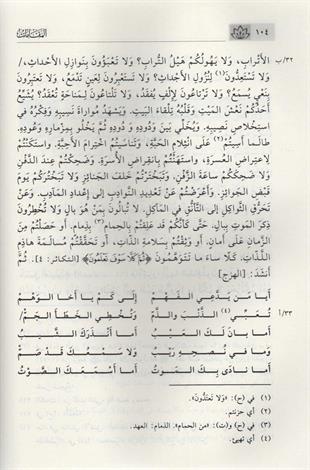 ١٠٤ المقامات
٣٢/ب الأَتْرابِ، وَلا يَهُولُكُمْ هَيْلُ التُّرابِ؟ وَلا تَعْبَؤُونَ بِنَوازِلِ الأَحْداثِ،/
وَلا تَسْتَعِدُّونَ(١) لِنُزُولِ الأَجْداثِ؟ وَلا تَسْتَعْبِرُونَ لِعَيْنٍ تَدْمَعُ، وَلا تَعْتَبِرُونَ
بِنَعْيٍ يُسْمَعُ؟ وَلا تَرْتاعُونَ لإِلْفٍ يُفْقَدُ، وَلا تَلْتاعُونَ لِمَناحَةٍ تُعْقَدُ؟ يُشَيِّعُ
أَحَدُكُمْ نَعْشَ المَيْتِ وَقَلْبُهُ تِلْقاءَ البَيْتِ. وَيَشْهَدُ مُواراةَ نَسِيبِهِ وَفِكْرُهُ في
اسْتِخْلاصِ نَصِيبِهِ. وَيُخَلِّي بَيْنَ وَدُودِهِ وَدُودِهِ ثُمَّ يَخْلُو بِمِزْمارِهِ وَعُودِهِ.
طالَما أَسِيتُمْ(٢) عَلى انْثِلامِ الحَبَّةِ، وَتَناسَيْتُمُ اخْتِرامَ الأَحِبَّةِ. واسْتَكَنْتُمْ
لاِعْتِراضِ العُسْرَةِ، واسْتَهَنْتُمْ بِانْقِراضِ الأُسْرَةِ. وَضَحِكْتُمْ عِنْدَ الدَّفْنِ
وَلا ضَحِكَكُمْ ساعَةَ الزَّفْنِ. وَتَبَخْتَرْتُمْ خَلْفَ الجَنائِزِ وَلا تَبَخْتُرَكُمْ يَوْمَ
قَبْضِ الجَوائِزِ. وَأَعْرَضْتُمْ عَنْ تَعْدِيدِ النَّوادِبِ إِلى إِعْدادِ المَآدِبِ. وَعَنْ
تَحَرُّقِ الثَّواكِلِ إِلى التَّأَنُّقِ في المَآكِلِ. لا تُبالُونَ بِمَنْ هُوَ بالٍ وَلا تُخْطِرُونَ
ذِكْرَ المَوْتِ بِبالٍ. حَتَّى كَأَنَّكُمْ قَدْ عَلِقْتُمْ بِالحِمامِ(٣) بِذِمامٍ. أَوْ حَصَلْتُمْ مِنَ
الزَّمانِ عَلى أَمانٍ. أَوْ وَثِقْتُمْ بِسَلامَةِ الذَّاتِ، أَوْ تَحَقَّقْتُمْ مُسالَمَةَ هادِمِ
اللَّذَّاتِ. كَلَّا ساءَ ما تَتَوَهَّمُونَ ﴿ثُمَّ كَلَّا سَوْفَ تَعْلَمُونَ﴾ [التكاثر: ٤]. ثُمَّ
أَنْشَدَ: [الهزج]
أَيا مَنْ يَدَّعي الفَهْمْ إِلى كَمْ يا أَخا الوَهْمْ
٣٣/أ تُعَبِّي(٤) الذَّنْبَ والذَّمّ وَتُخْطِي الخَطَأَ الجَمّ/
أَما بانَ لَكَ العَيْبْ أَما أَنْذَرَكَ الشَّيْبْ
وَما في نُصْحِهِ رَيْبْ وَلا سَمْعُكَ قَدْ صَمّ
أَما نادَى بِكَ المَوْتْ أَما أَسْمَعَكَ الصَّوْتْ
(١) في (ح): «وَلا تَعْتَدُّونَ».
(٢) أي حزنتم.
(٣) في (ح) و(ت): «من الحمام». الذمام: العهد.
(٤) أي تهيئ.